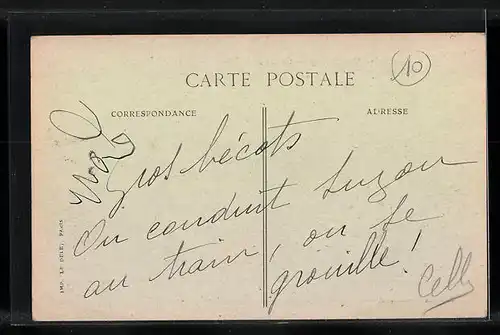 10
CARTE POSTALE
CORRESPONDANCE
ADRESSE
Gros bécots
On conduit Suzon
au train, on se
grouille !
IMP. LE DELEY, PARIS